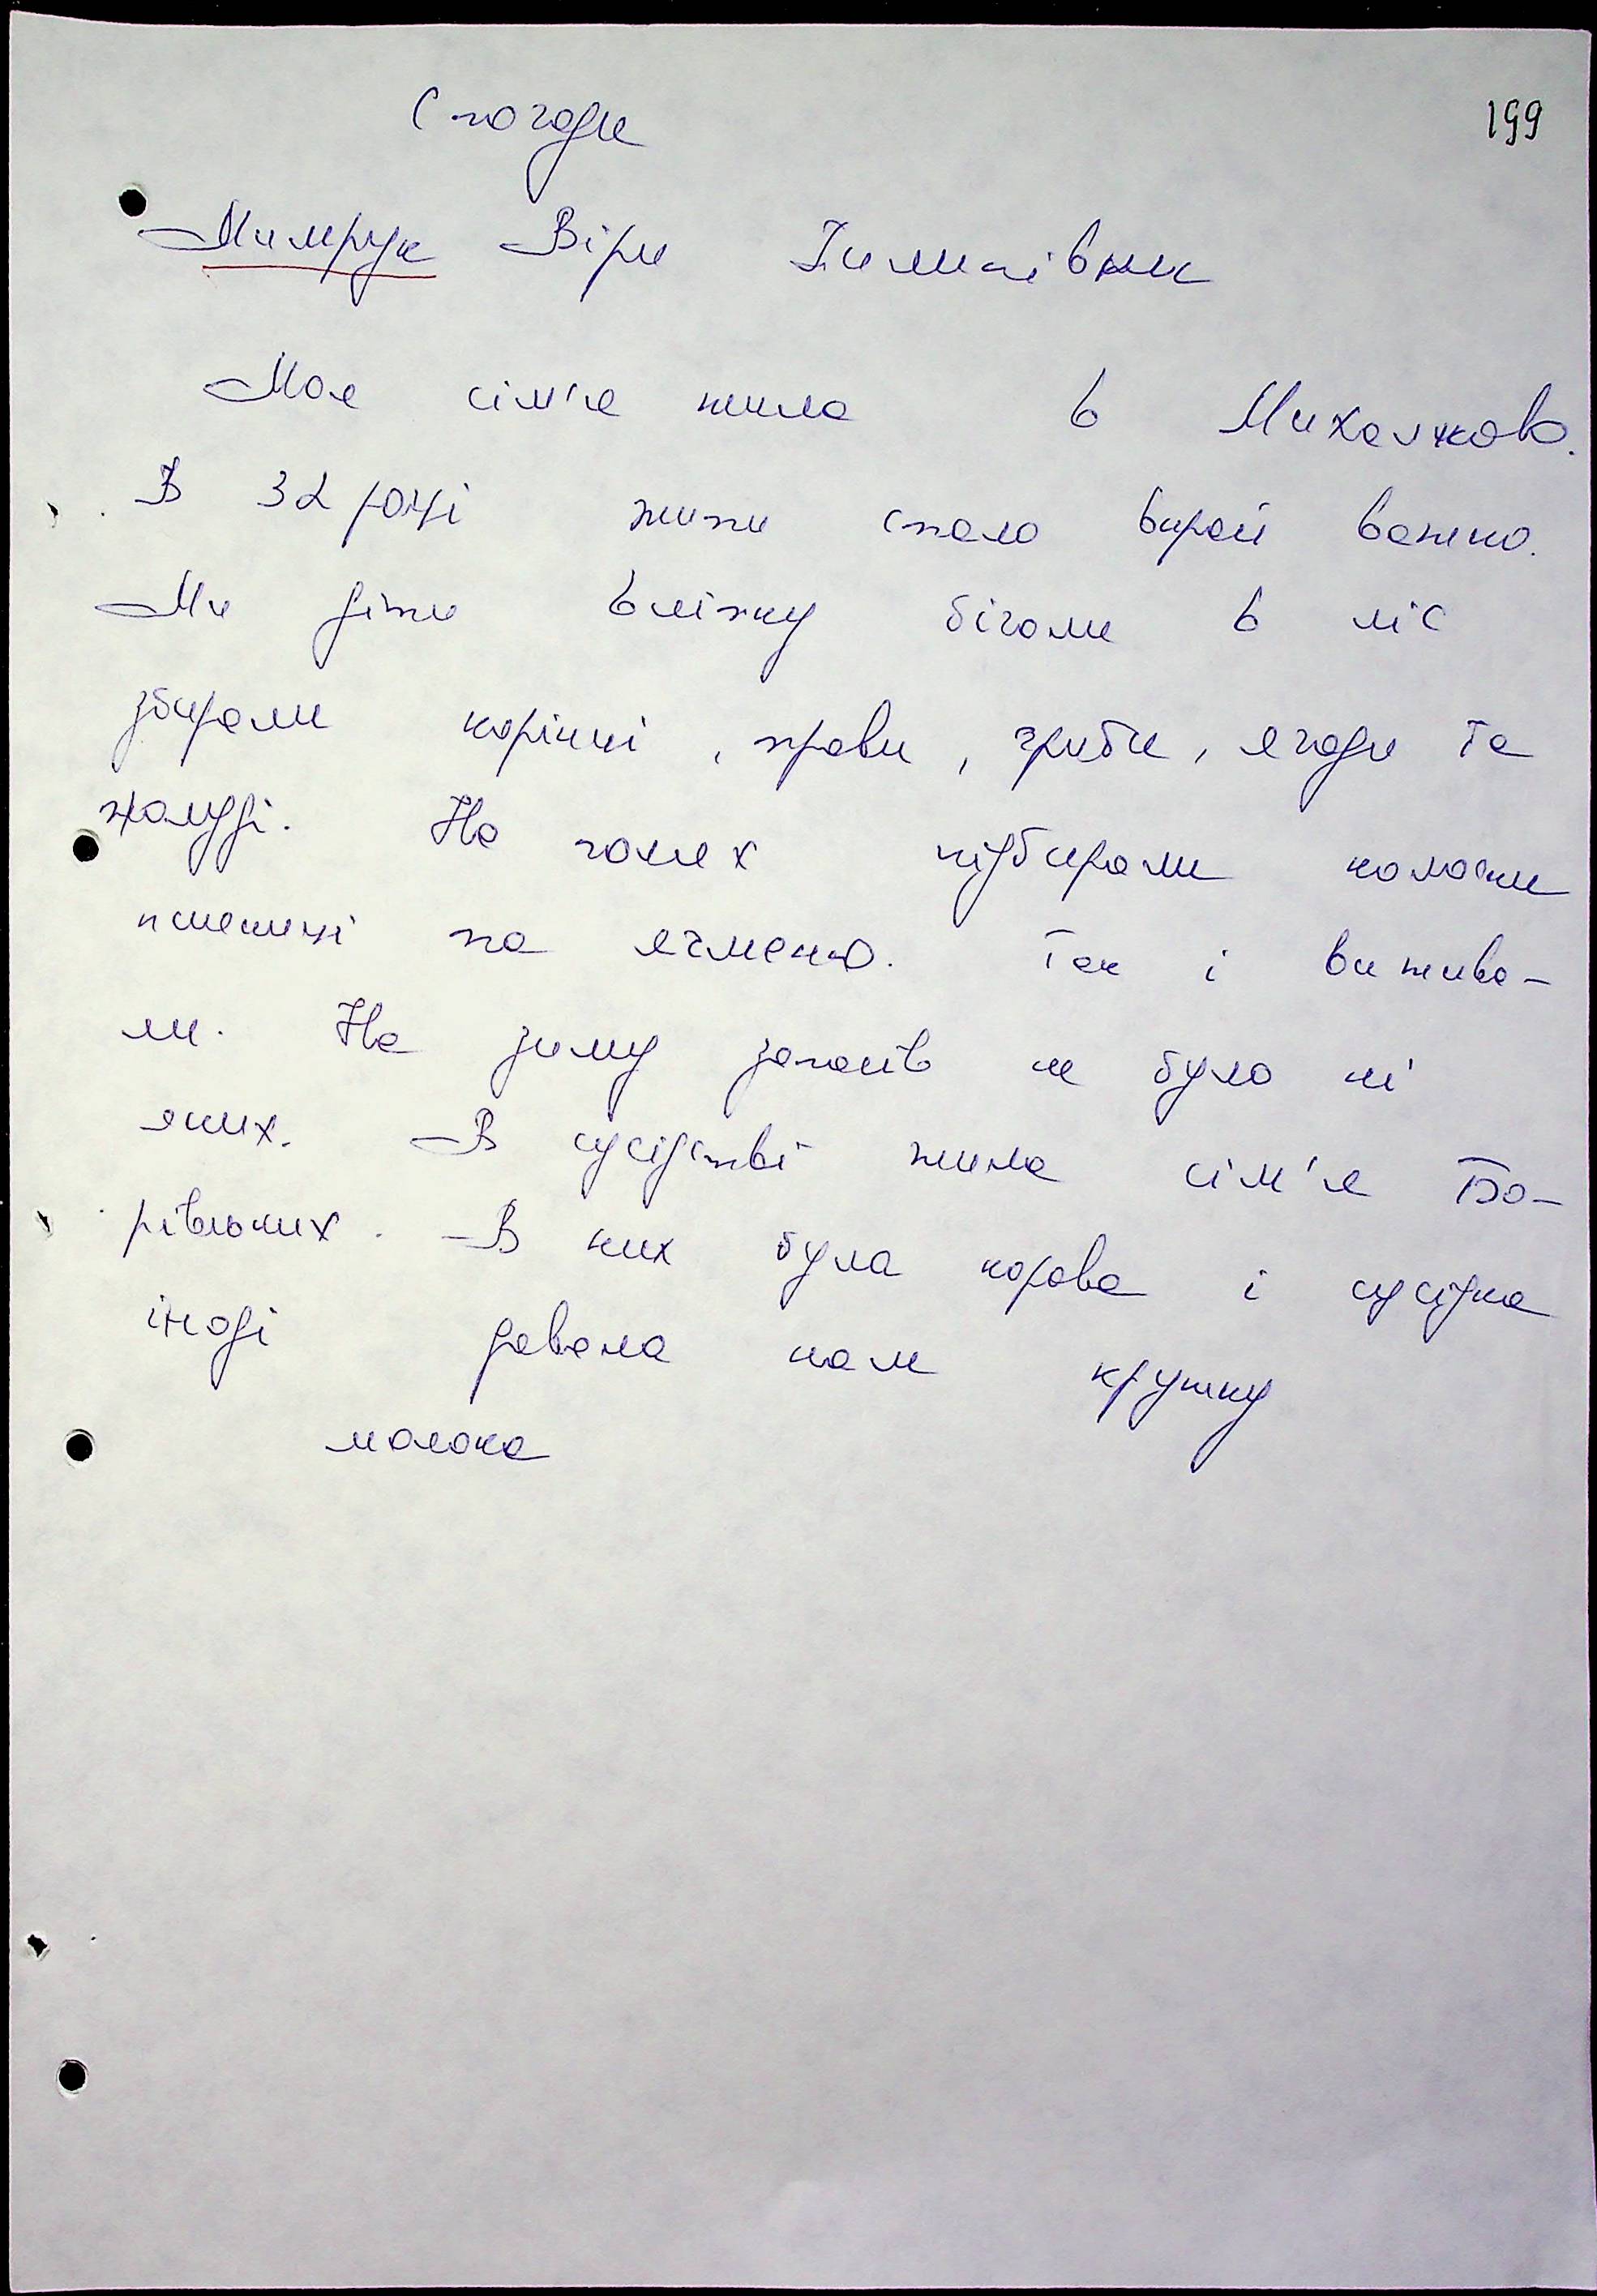 Спогади
199
Мимрук Віри Тимишівни
Моя сім'я жила в Михалково.
В 32 році жити стало вкрай важно.
Ми діти влітку бігали в ліс
збирали корінні, трави, гриби, ягоди та
жолуді. На полях підбирали колоски
пшениці та ячменю. Так і вижива-
ли. На зиму запасів не було ні
яких. В сусідстві жила сім'я Бо-
рівських. В них була корова і сусідка
іноді давала нам кружку
молока